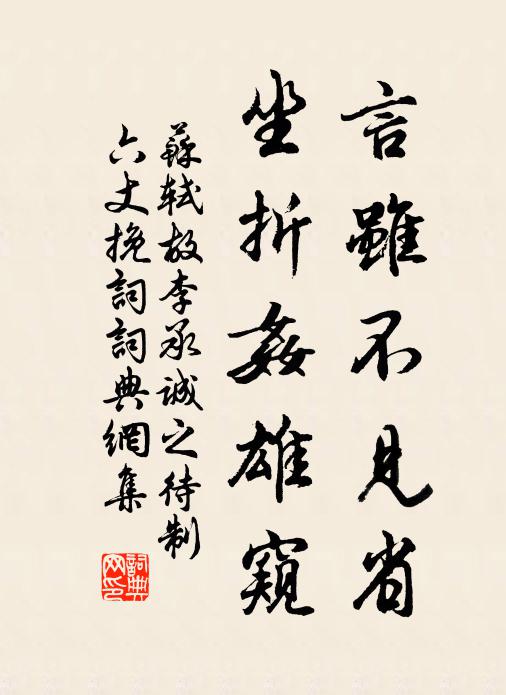 言雖不見省
坐折姦雄窺
蘇軾故李承誠之待制
六丈挽詞詞典網集
詞典網印